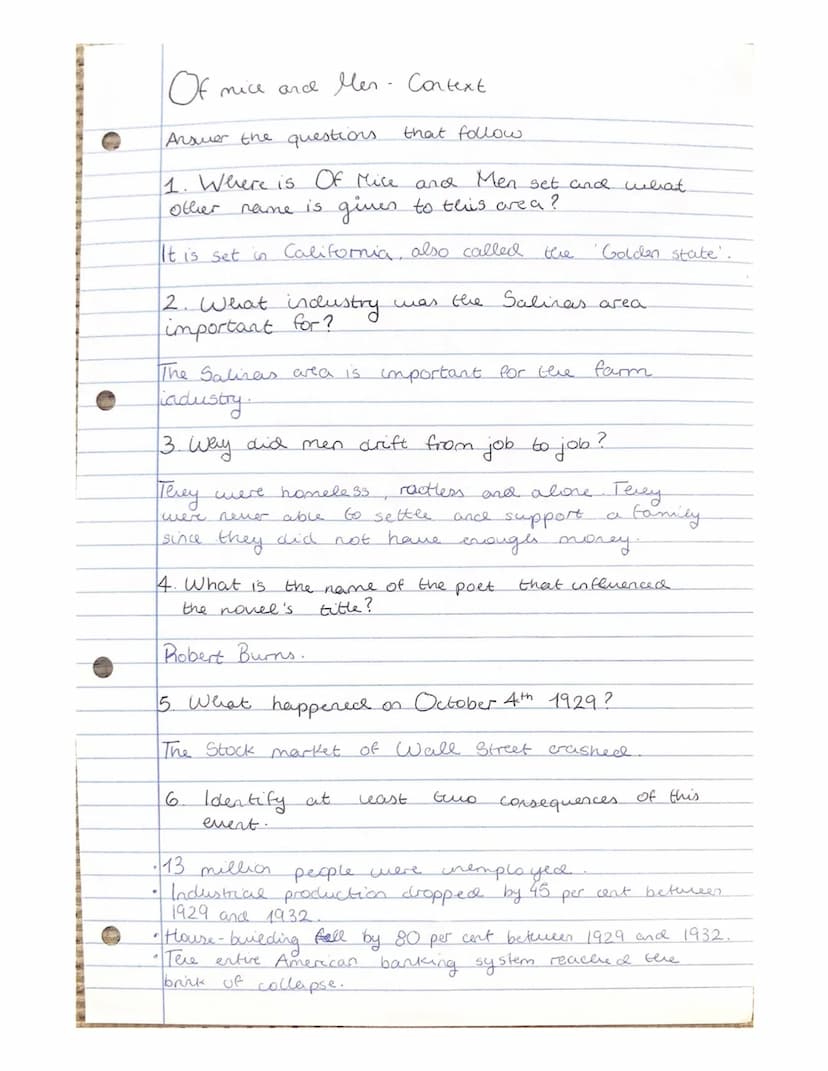 Of mice and Men - Context
Answer the questions that follow
1. Where is Of Mice and Men set and what
other name is given to this area?
It is set in California, also called the 'Golden state'.
2. What industry was the Salinas area
important for?
The Salinas area is important for the farm
industry.
3. Why did men drift from job to job?
They were homeless, rootless and alone. They
were never able to settle and support a family
since they did not have enough money.
4. What is the name of the poet that influenced
the novel's title?
Robert Burns.
5. What happened on October 4th 1929?
The Stock market of Wall Street crashed.
6. Identify at least two consequences of this
event.
• 13 million people were unemployed.
• Industrial production dropped by 45 per cent between
1929 and 1932.
• House-building fell by 80 per cent between 1929 and 1932.
• The entire American banking system reached the
brink of collapse.